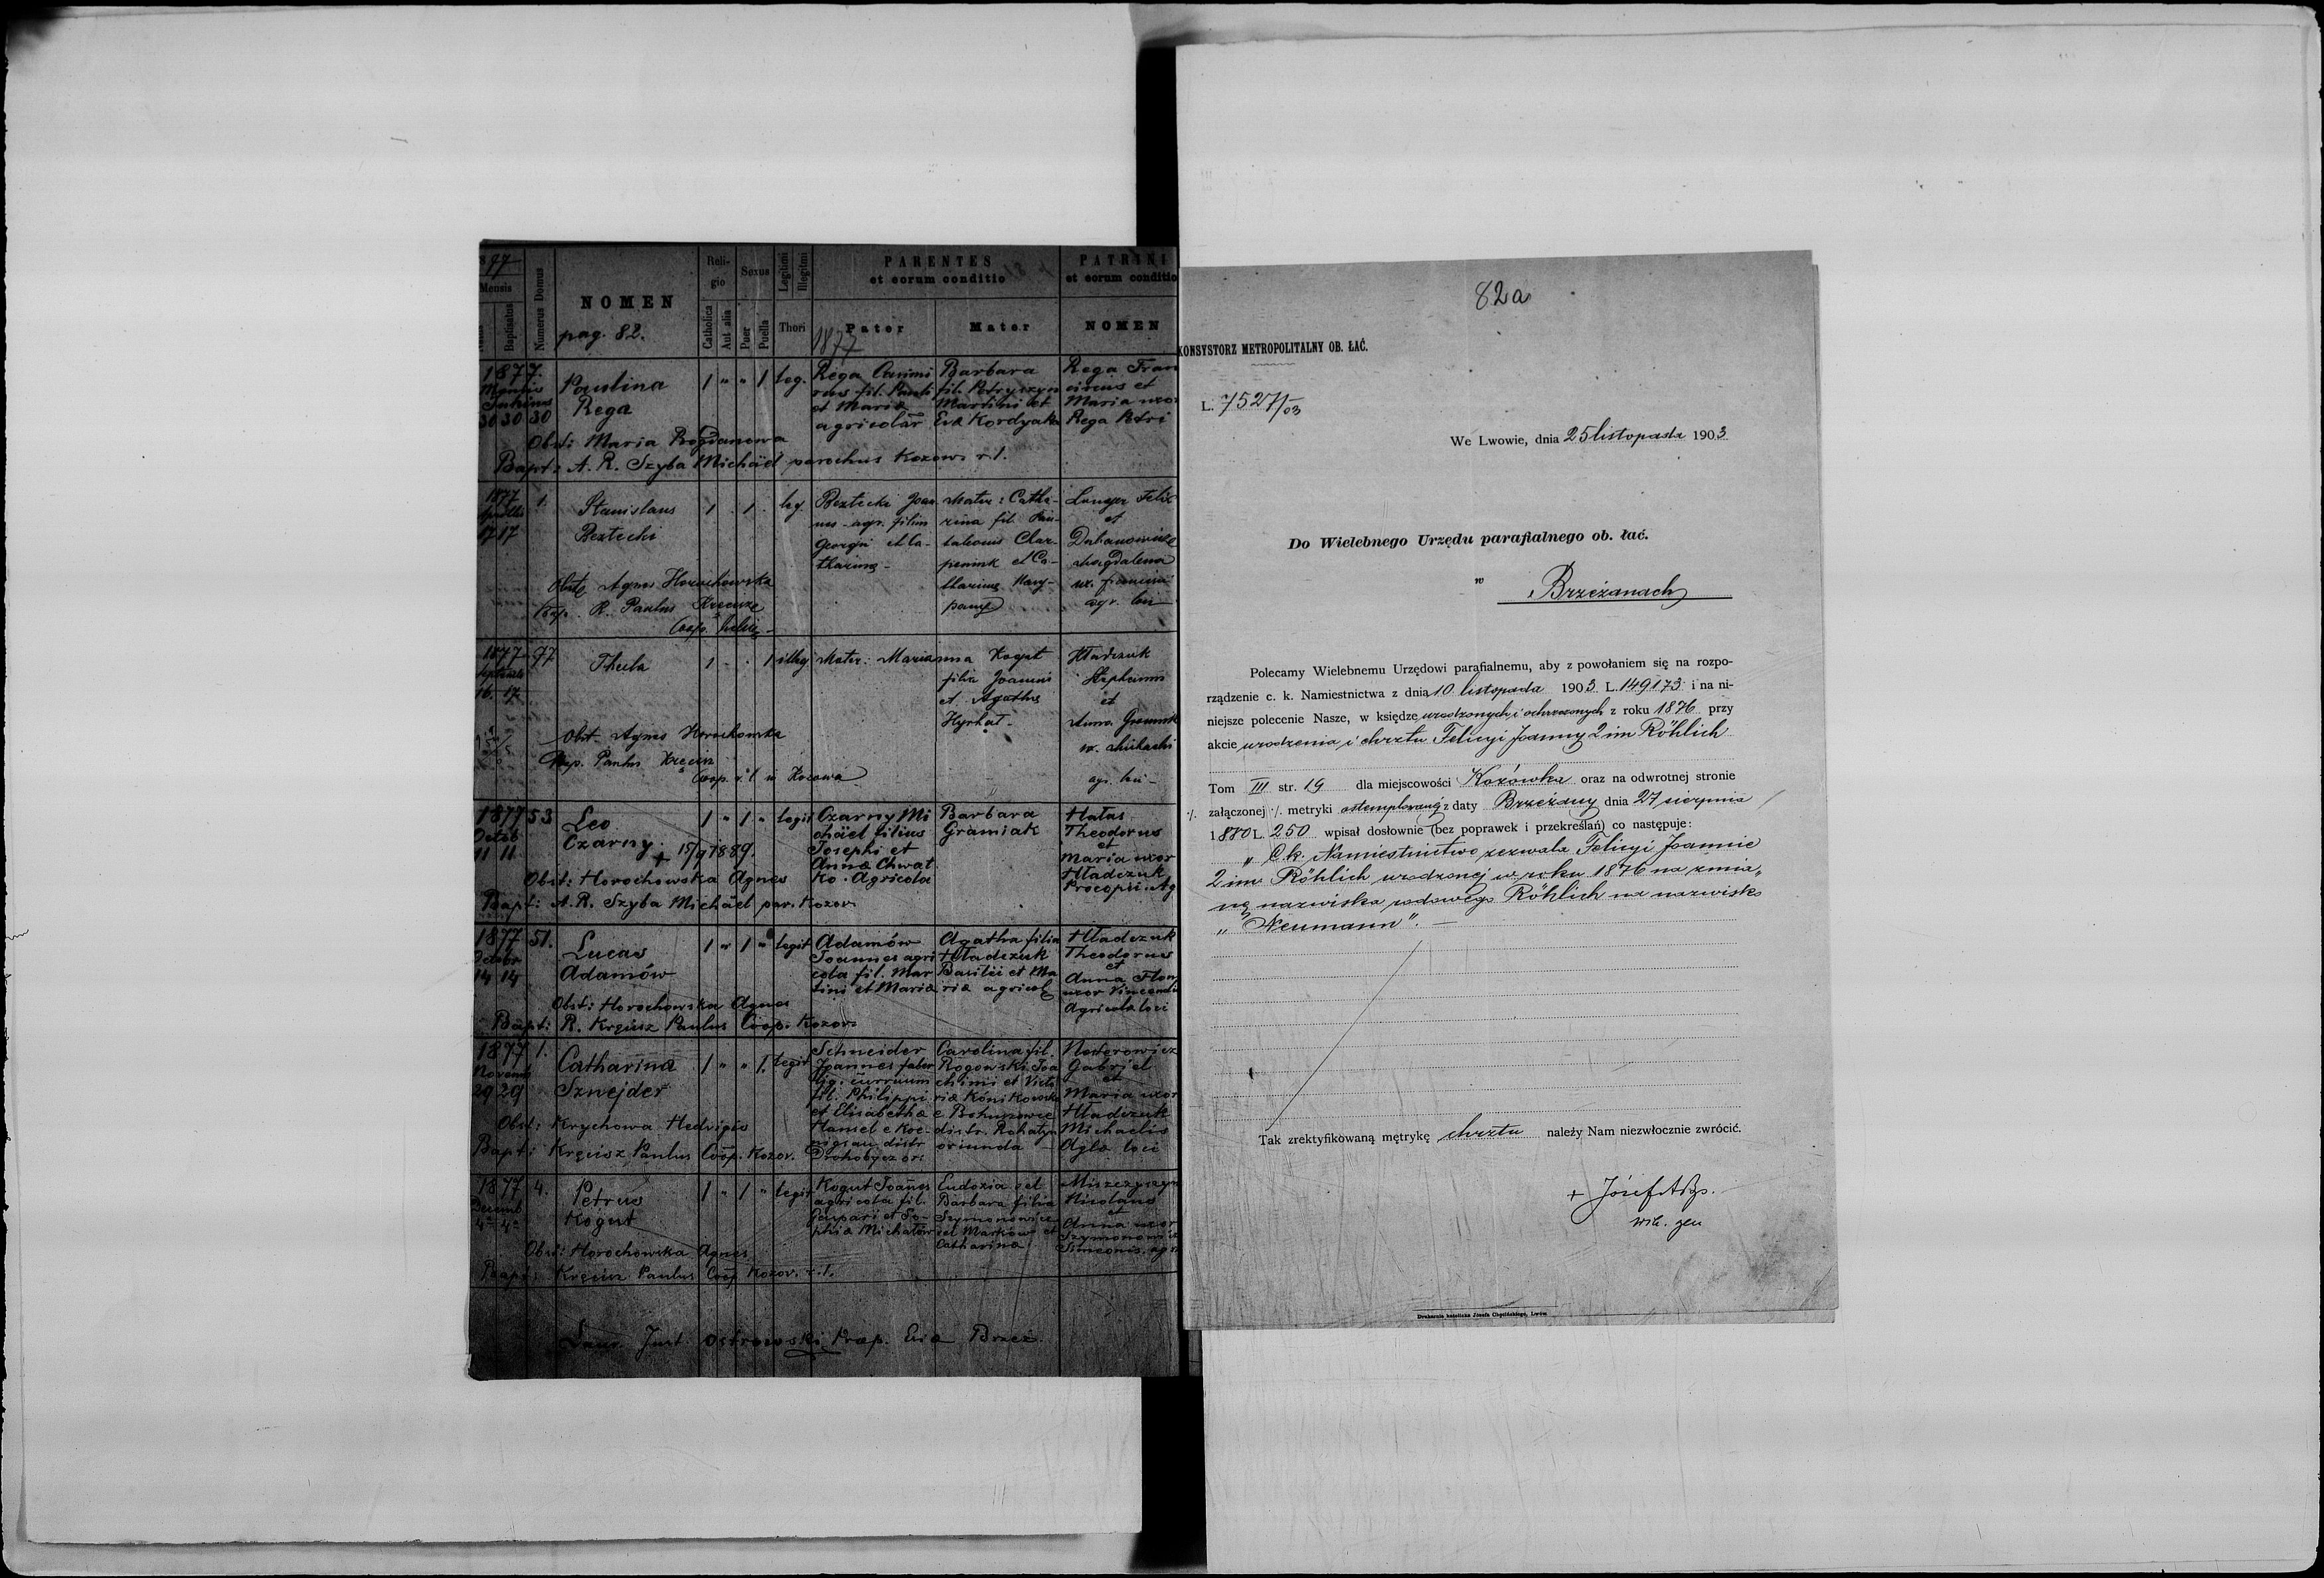 1877
Mensis
Baptisatus
Numerus Domus
NOMEN
pag. 82.
Reli-
gio
Catholica
Aut alia
Sexus
Puer
Puella
Legitimi
Illegitimi
Thori
PARENTES
et eorum conditio
1877
Pater
Mater
PATRINI
et eorum conditio
NOMEN
1877.
30 30 30
Paulina
Rega
1 " " 1 leg.
Rega Casimi
rus fil. Pauli
et Maria
agricolar
Barbara
fil. Petryszyn
Martini et
Eva Kordyaka
Rega Fran
ciscus et
Maria uxor
Rega Petri
Obst: Maria Bogdanowa
Bapt: A. R. Szyba Michäel parochus Kozow. r. l.
1877
17 17
1.
Stanislaus
Beztecki
1 . 1 . leg
Beztecki Joan
nes agr. filius
Georgii et Ca-
tharinae -
Mater: Catha-
rina fil. Pan-
taleonis Char-
et Ca-
tharinae
Felix
et
Magdalena
ux.
agr. loci
Obst. Agnes Horochowska
Bap. R. Paulus Kręcisz
Coop.
1877
16. 17
97
Thecla
1 . . 1 illeg
Mater: Marianna Kogut
filia Joannis
et Agathae
Hyrhat -
Hładczuk
Stephanus
et
Anna
ux. Michaeli
agr. loci -
Obst. Agnes Horochowska
Bap. Paulus Kręcisz
Coop. r. l. in Kozowa
1877
Octob
11 11
53
Leo
Czarny.
+ 15/9 1889.
1 " 1 " legit
Czarny Mi
chäel filius
Josephi et
Anna Chwat
ko. Agricola
Barbara
Gramiak
Hałas
Theodorus
et
Maria uxor
Hładczuk
Procopii. Ag
Obst: Horochowska Agnes
Bapt: A. R. Szyba Michäel par. Kozov.
1877
Octobr
14 14
51.
Lucas
Adamów
1 " 1 " legit
Adamów
Joannes agri
cola fil. Mar
tini et Maria
Agatha filia
Hładczuk
Basilii et Ma
ria agricol
Hładczuk
Theodorus
et
Anna
uxor Vincentii
Agricola loci
Obst: Horochowska Agnes
Bapt: R. Kręcisz Paulus Coop. Kozov.
1877
Novemb
29 29
1.
Catharina
Sznejder
1 " " 1. legit
Schneider
Joannes faber
lig. curruum
fil. Philippi
et Elisabetha
Hansel e
distr
Drohobycz
Carolina fil.
Rogowski Joa
chimi et Victo
ria Konikowska
e Bohuszowce
distr. Rohatyn
oriunda
Nesterowicz
Gabriel
et
Maria uxor
Hładczuk
Michaelis
Agla loci
Obst: Krychowa Hedvigis
Bapt: Kręcisz Paulus Coop. Kozov.
1877
Decemb
4 4
4.
Petrus
Kogut
1 " 1 " legit
Kogut Joanes
agricola fil.
Gaspari et So-
phia Michałów
Eudoxia vel
Barbara filia
Szymonowicz
vel Marków et
Catharina
Miszczyszyn
Nicolaus
et
Anna uxor
Szymonowicz
Simeonis. agr
Obst: Horochowska Agnes
Bapt: Kręcisz Paulus Coop. Kozov. r. l.
Laur. Just. Ostrowski Praep. Eccl. Brzez.
82a
KONSYSTORZ METROPOLITALNY OB. ŁAĆ.
L. 7527/03
We Lwowie, dnia 25 listopada 1903
Do Wielebnego Urzędu parafialnego ob. łać.
w Brzeżanach
Polecamy Wielebnemu Urzędowi parafialnemu, aby z powołaniem się na rozpo-
rządzenie c. k. Namiestnictwa z dnia 10 listopada 1903 L. 149173 i na ni-
niejsze polecenie Nasze, w księdze urodzonych i ochrzczonych z roku 1876 przy
akcie urodzenia i chrztu Felicyi Joanny 2 im Röhlich
Tom III str. 19 dla miejscowości Kozówka oraz na odwrotnej stronie
./. załączonej ./. metryki ostemplowanej z daty Brzeżany dnia 27 sierpnia
1880 L. 250 wpisał dosłownie (bez poprawek i przekreślań) co następuje:
„ C.k. Namiestnictwo zezwala Felicyi Joannie
2 im Röhlich urodzonej w roku 1876 na zmia„
nę nazwiska rodowego Röhlich na nazwisko
„Neumann". —
Tak zrektyfikowaną metrykę chrztu należy Nam niezwłocznie zwrócić.
+ Józef ABp.
wik. gen
Drukarnia katolicka Józefa Chęcińskiego, Lwów